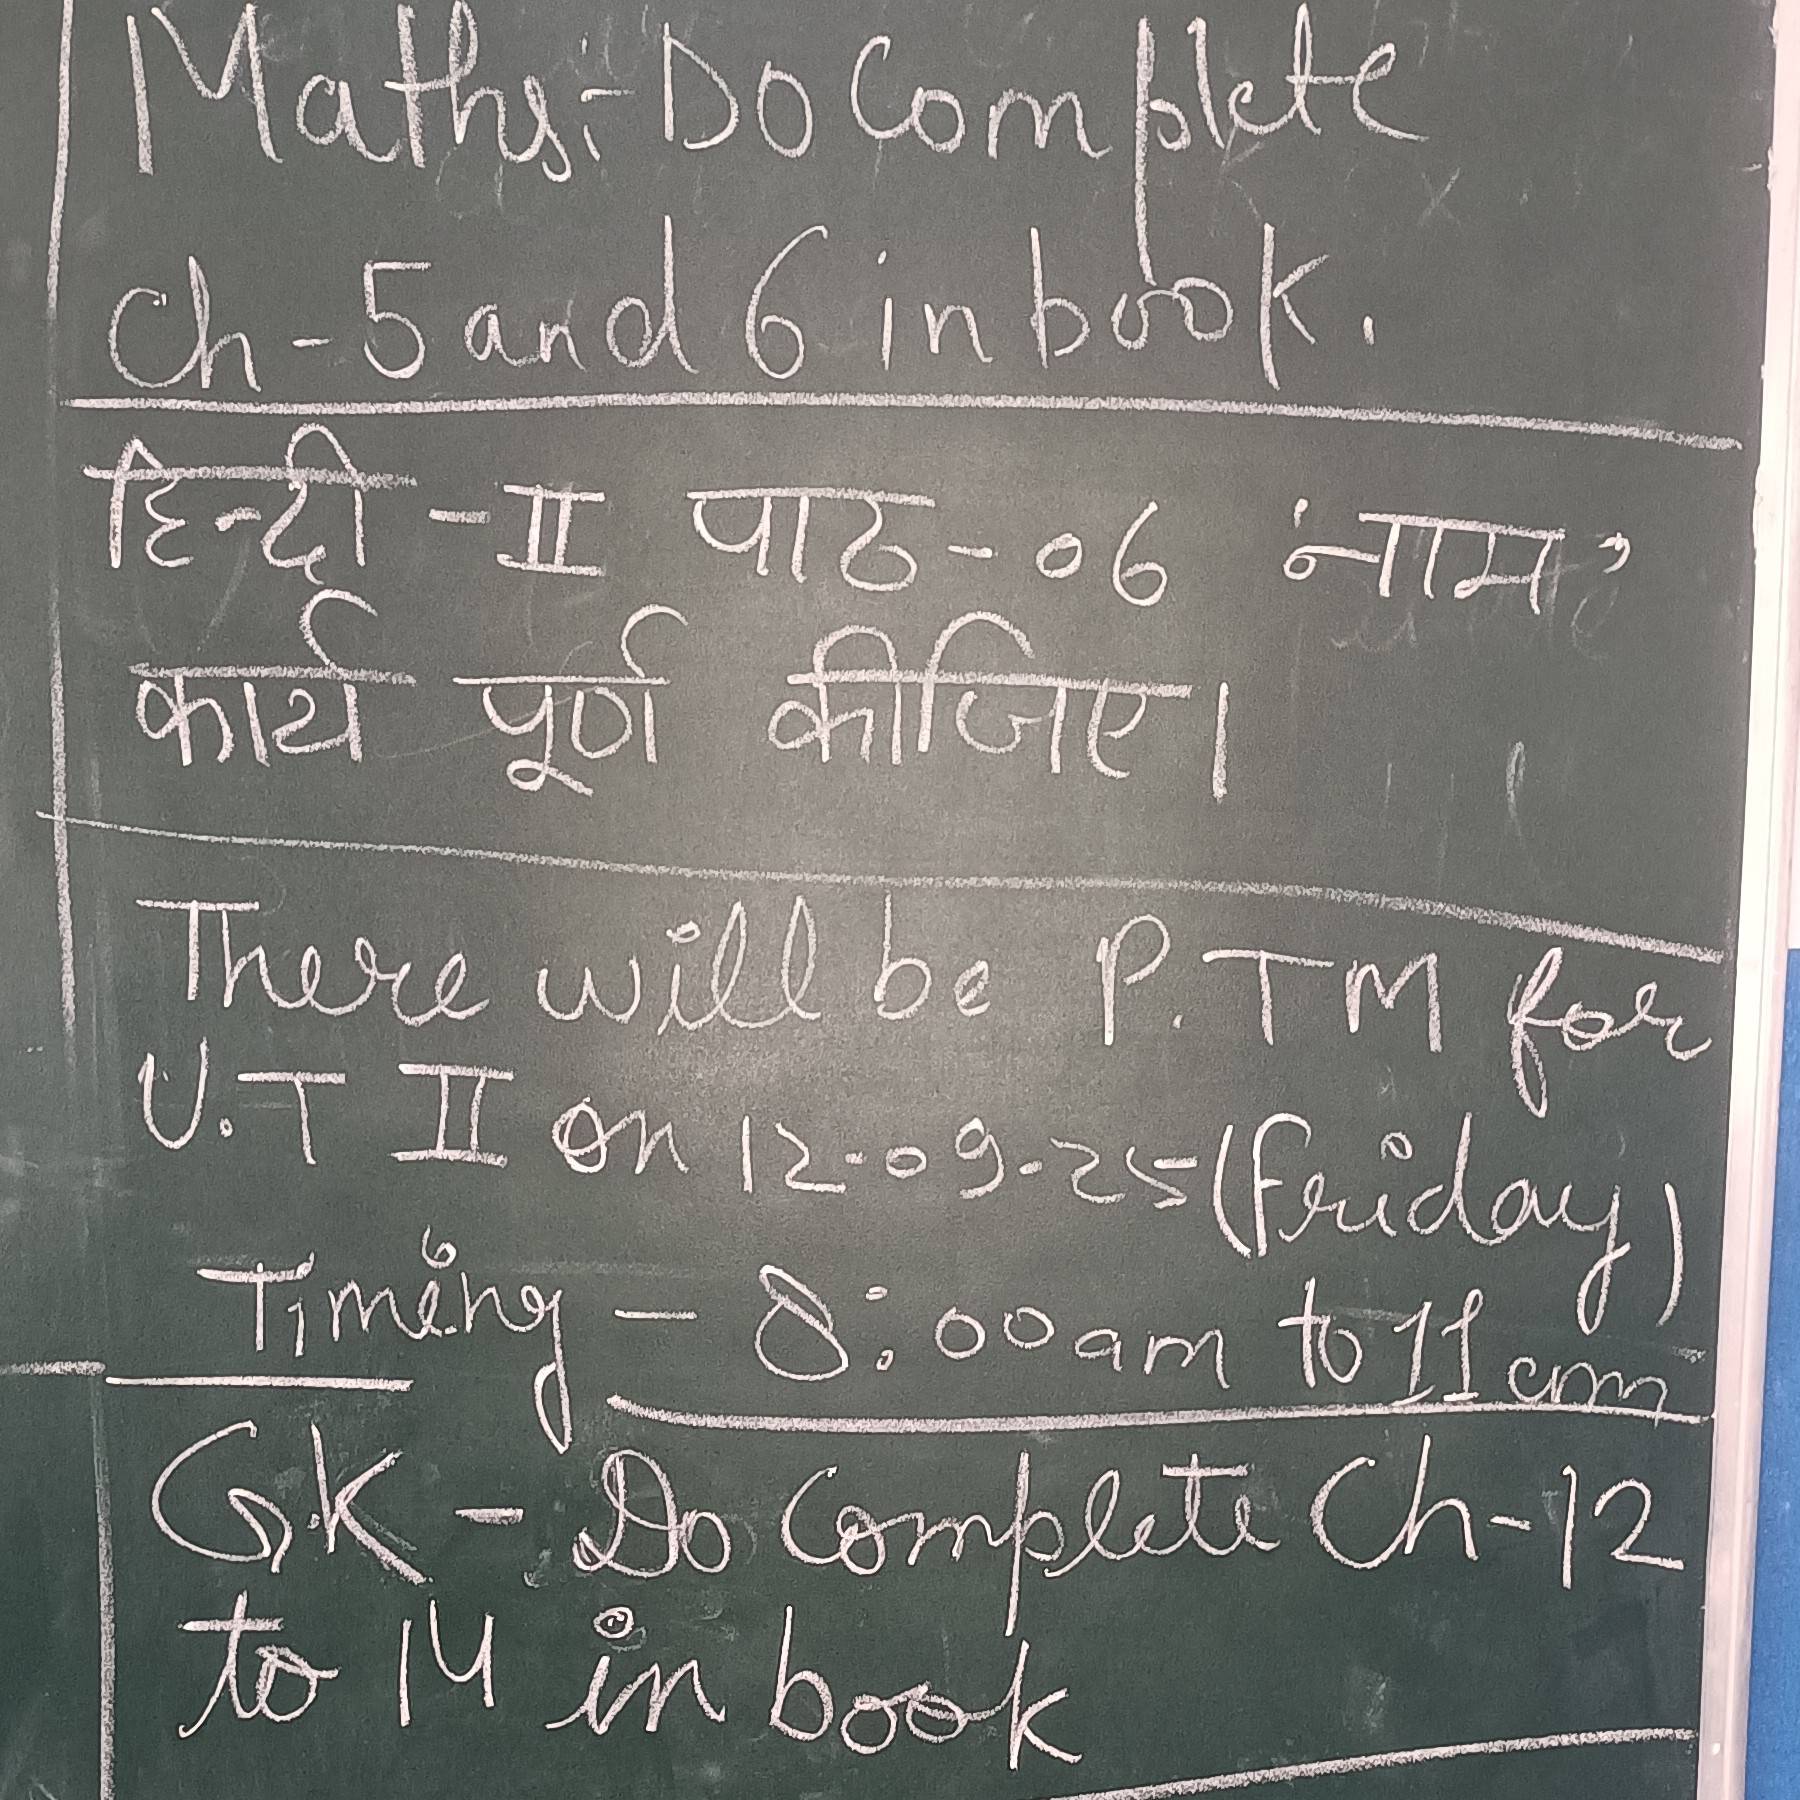 Maths:- Do Complete
Ch-5 and 6 in book.
हिन्दी -II पाठ-06 'नाम'
कार्य पूर्ण कीजिए।
There will be P.TM for
U.T II on 12-09-25 (Friday)
Timing - 8:00am to 11 am
G.K - Do Complete Ch-12
to 14 in book